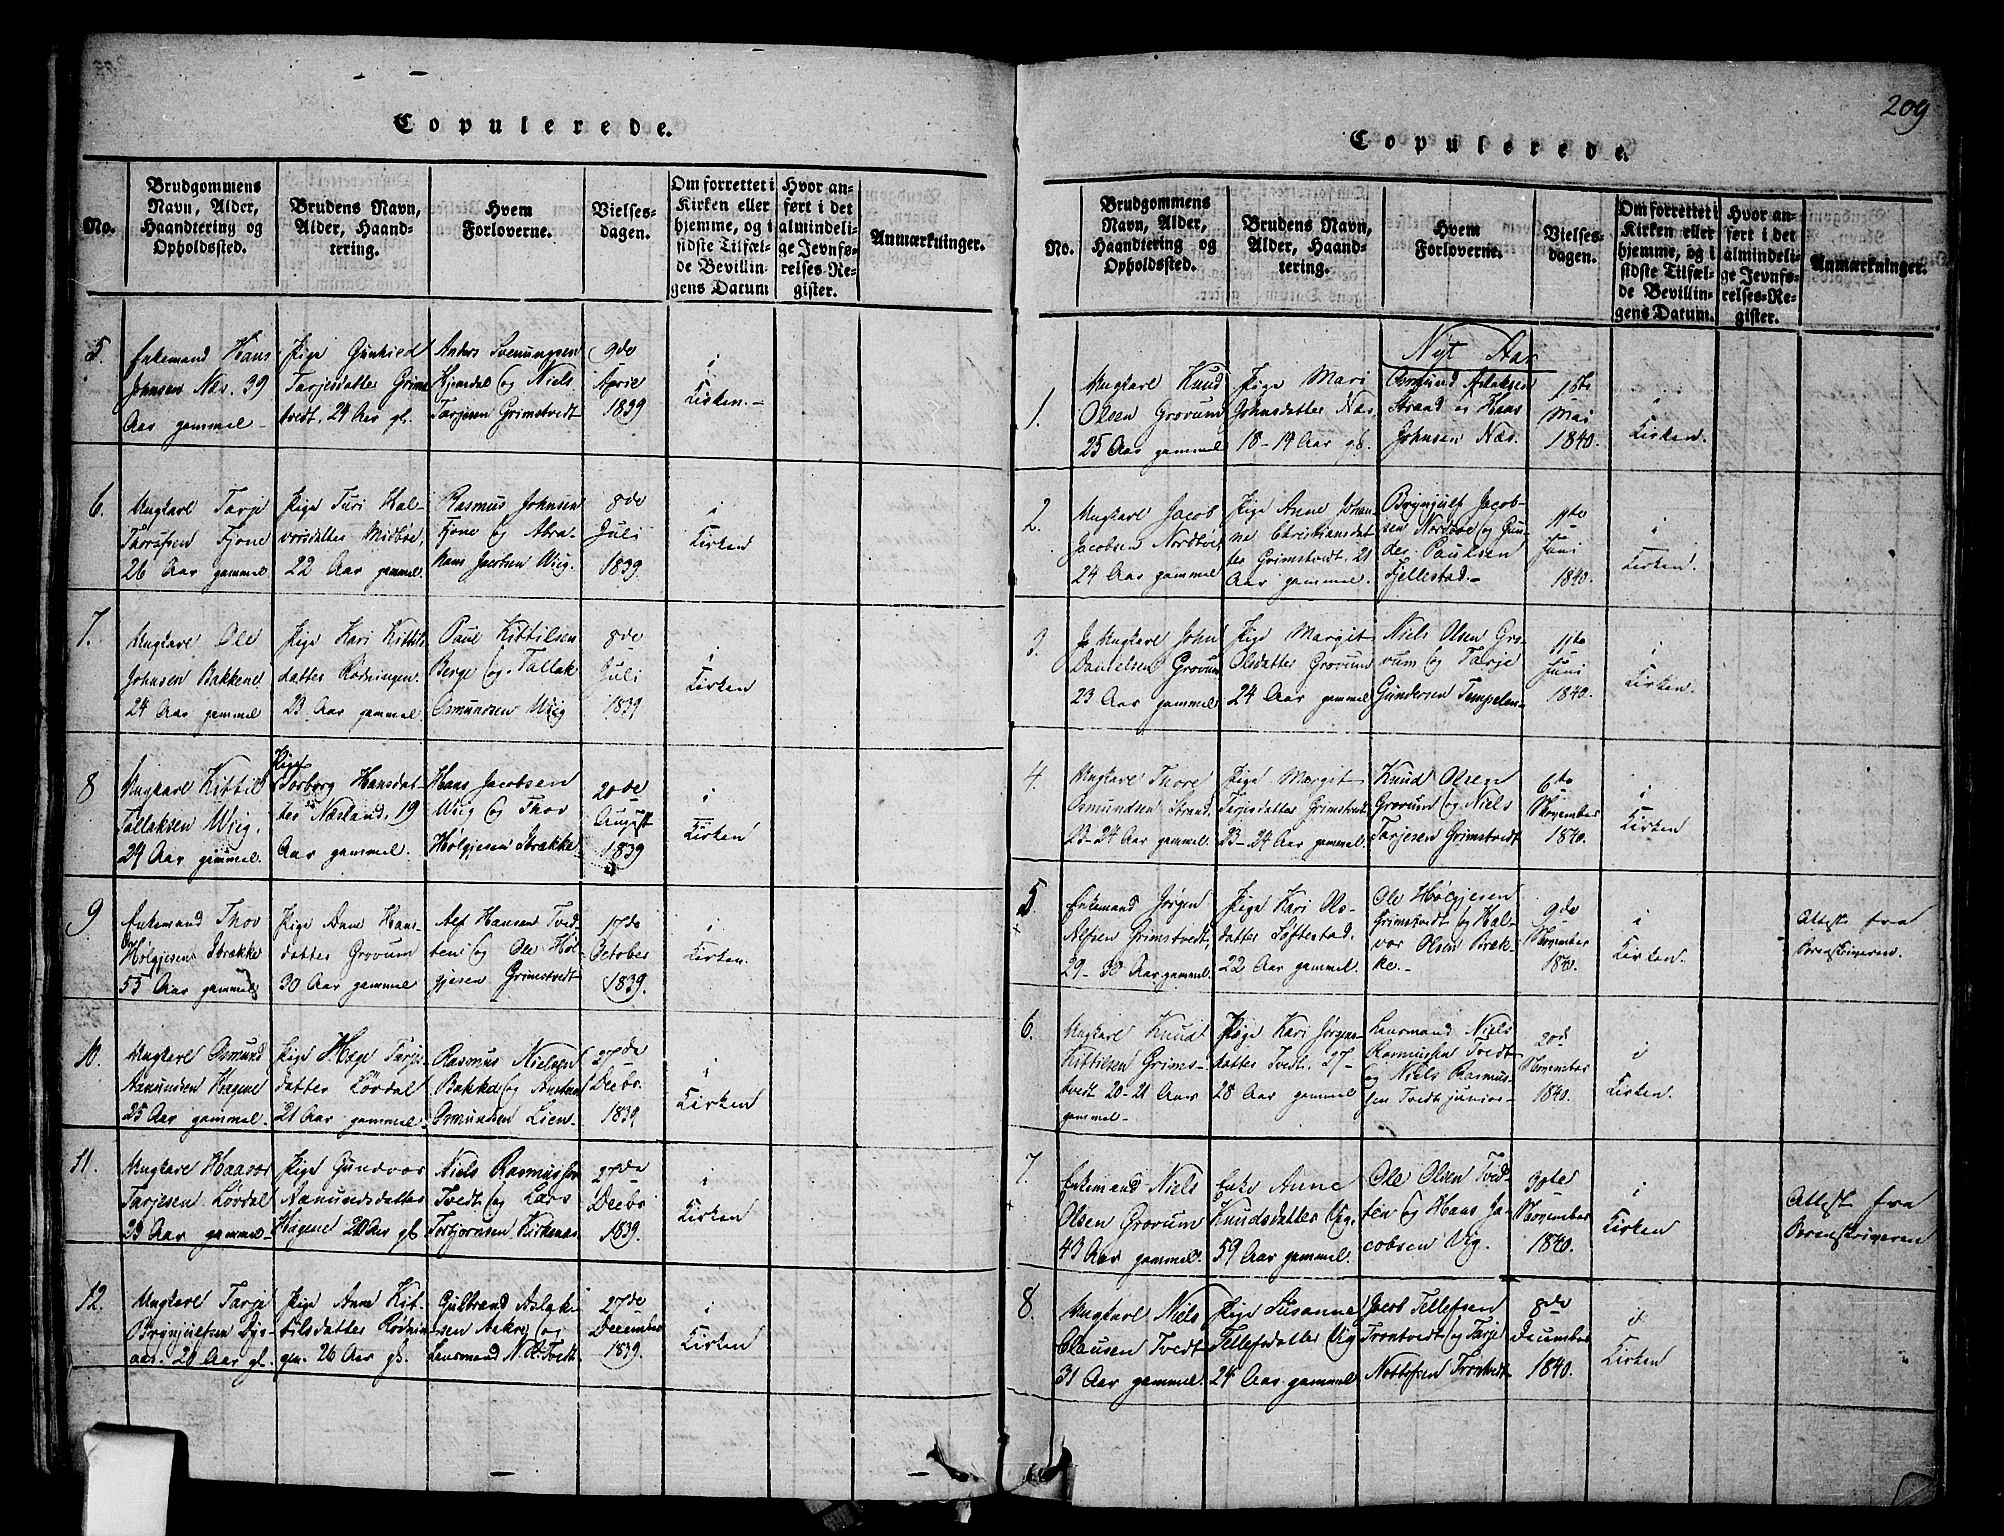 Copulerede.
No.
Brudgommens
Navn, Alder,
Haandtering og
Opholdssted.
Brudens Navn,
Alder, Haand-
tering.
Hvem
Forloverne.
Vielses-
dagen.
Om forrettet i
Kirken eller
hjemme, og i
sidste Tilfæl-
de Bevillin-
gens Datum
Hvor an-
ført i det
almindeli-
ge Jevnfø-
relses-Re-
gister.
Anmærkninger.
5.
Enkemand Hans
Johnsen Næs. 39
Aar gammel
Pige Gunhild
Tarjesdatter Grim-
tvedt, 24 Aar gl.
Anders Svenungsen
Hjemdal og Niels
Tarjesen Grimstvedt
9de
April
1839
i
Kirken.
6.
Ungkarl Tarje
Thorsen Fjone
26 Aar gammel
Pige Turi Hal-
vorsdatter Midbøe,
22 Aar gammel.
Rasmus Johnsen
Fjone og Abra-
ham Jacobsen Wiig.
8de
Juli
1839
i
Kirken
7.
Ungkarl Ole
Johnsen Bakkene
24 Aar gammel
Pige Kari Kittils
datter Rødningen
23 Aar gammel
Paul Kittilsen
Berge og Tallak
Osmundsen Wiig
8de
Juli
1839
i
Kirken
8
Ungkarl Kittil
Tallaksen Wiig.
24 Aar gammel.
Pige
Torborg Hansdat-
ter Næsland, 19
Aar gammel.
Hans Jacobsen
Wiig og Thov
Hølgjesen Strække
20de
August
1839
i
Kirken
9
Enkemand Thov
Hølgjesen Strække
55 Aar gammel
Pige Anne Hans-
datter Grovum
30 Aar gammel
Alf Hansen Tved-
ten og Ole Høl-
gjesen Grimstvedt
17de
October
1839.
i
Kirken.
10.
Ungkarl Osmund
Aanundsen Hagene
25 Aar gammel.
Pige Hæge Tarjes-
datter Lørdal
21 Aar gammel
Rasmus Nielsen
Bakka og
Osmundsen Lien
27de
Decbr.
1839
i
Kirken
11.
Ungkarl Haavor
Tarjesen Lørdal
23 Aar gammel
Pige Gundvor
Aanundsdatter
Hagene 20 Aar gl
Niels Rasmussen
Tvedt og Lars
Torbjørnsen Kirkenæs
27de
Decbr
1839.
i
Kirken
12.
Ungkarl Tarje
Brynjulfsen Dys-
aas. 20 Aar gl.
Pige Anne Kit-
tilsdatter Rødnin-
gen. 26 Aar gl.
Gulbrand Aslak-
sen Aakre og
Lensmand N. R. Tvedt
27de
December
1839.
i
Kirken
209
Copulerede.
No.
Brudgommens
Navn, Alder,
Haandtering og
Opholdssted.
Brudens Navn,
Alder, Haand-
tering.
Hvem
Forloverne.
Vielses-
dagen.
Om forrettet i
Kirken eller
hjemme, og i
sidste Tilfæl-
de Bevillin-
gens Datum.
Hvor an-
ført i det
almindeli-
ge Jevnfø-
relses-Re-
gister.
Anmærkninger.
Nyt Aar
1.
Ungkarl Knud
Olsen Grovum
25 Aar gammel
Pige Mari
Johnsdatter Næs,
18-19 Aar gl.
Osmund Aslaksen
Strand og Hans
Johnsen Næs.
1ste
Mai
1840.
i
Kirken.
2.
Ungkarl Jacob
Jacobsen Nordbøe,
24 Aar gammel
Pige Anne Johan-
ne Christiansdat-
ter Grimstvedt. 21
Aar gammel.
Brynjulf Jacob-
sen Nordbøe og Gun-
der Paulsen
Fjellestad.
11te
Juni
1840.
i
Kirken.
3.
Ungkarl John
Danielsen Grovum
23 Aar gammel
Pige Margit
Olsdatter Grovum
24 Aar gammel
Niels Olsen Gro-
vum og Tarje
Gundersen Tempelen
11te
Juni
1840.
i
Kirken.
4.
Ungkarl Thore
Osmundsen Strand
23-24 Aar gammel
Pige Margit
Tarjesdatter Grimstvedt
23-24 Aar gammel
Knud Olsen
Grovum og Niels
Tarjesen Grimstvedt
6te
November
1840.
i
Kirken
5.
Enkemand Jørgen
Alfsen Grimstvedt,
29-30 Aar gammel
Pige Kari Ols-
datter Løftestad.
22 Aar gammel.
Ole Hølgjesen
Grimstvedt og Hal-
vor Olsen Bræk-
ke.
9de
November
1840.
i
Kirken.
Attest fra
Sorenskriveren.
6.
Ungkarl Knud
Kittilsen Grims-
tvedt 20-21 Aar
gammel.
Pige Kari Jørgens
datter Tvedt. 27-
28 Aar gammel
Lensmand Niels
Rasmussen Tvedt
og Niels Rasmus-
sen Tvedt junior
20de
November
1840.
i
Kirken.
7.
Enkemand Niels
Olsen Grovum
43 Aar gammel.
Enke Anne
Knudsdatter Vig
59 Aar gammel.
Ole Olsen Tved-
ten og Hans Ja-
cobsen Vig.
30te
November
1840.
i
Kirken
Attest fra
Sorenskriveren
8.
Ungkarl Niels
Clausen Tvedt
31 Aar gammel.
Pige Susanne
Tellefsdatter Vig
24 Aar gammel
Jacob Tellefsen
Trontvedt og Tarje
Nottolfsen Trontvedt
8de
December
1840.
i
Kirken